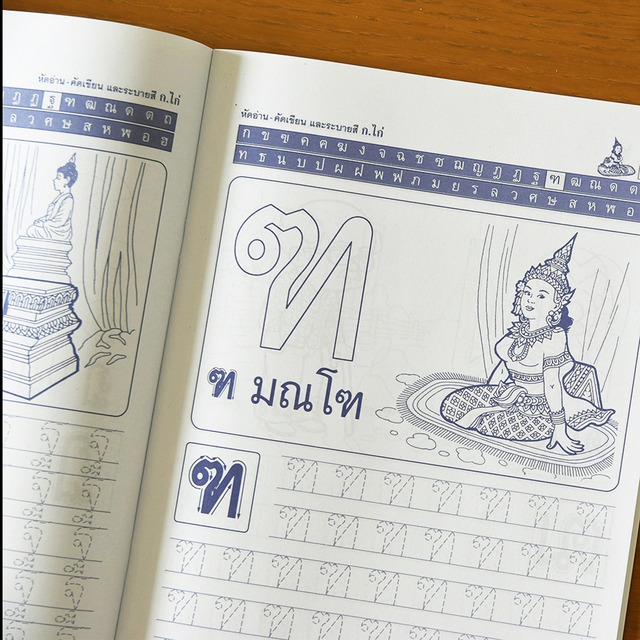 หัดอ่าน - คัดเขียน และระบายสี ก.ไก่
ฎ ฏ ฐ ฑ ฒ ณ ด ต ถ
ล ว ศ ษ ส ห ฬ อ ฮ
หัดอ่าน - คัดเขียน และระบายสี ก.ไก่
ก ข ฃ ค ฅ ฆ ง จ ฉ ช ซ ฌ ญ ฎ ฏ ฐ ฑ ฒ ณ ด ต
ท ธ น บ ป ผ ฝ พ ฟ ภ ม ย ร ล ว ศ ษ ส ห ฬ อ
ฑ
ฑ มณโฑ
ฑ
ฑ ฑ ฑ ฑ ฑ ฑ ฑ
ฑ ฑ ฑ ฑ ฑ ฑ ฑ ฑ
ฑ ฑ ฑ ฑ ฑ ฑ ฑ ฑ